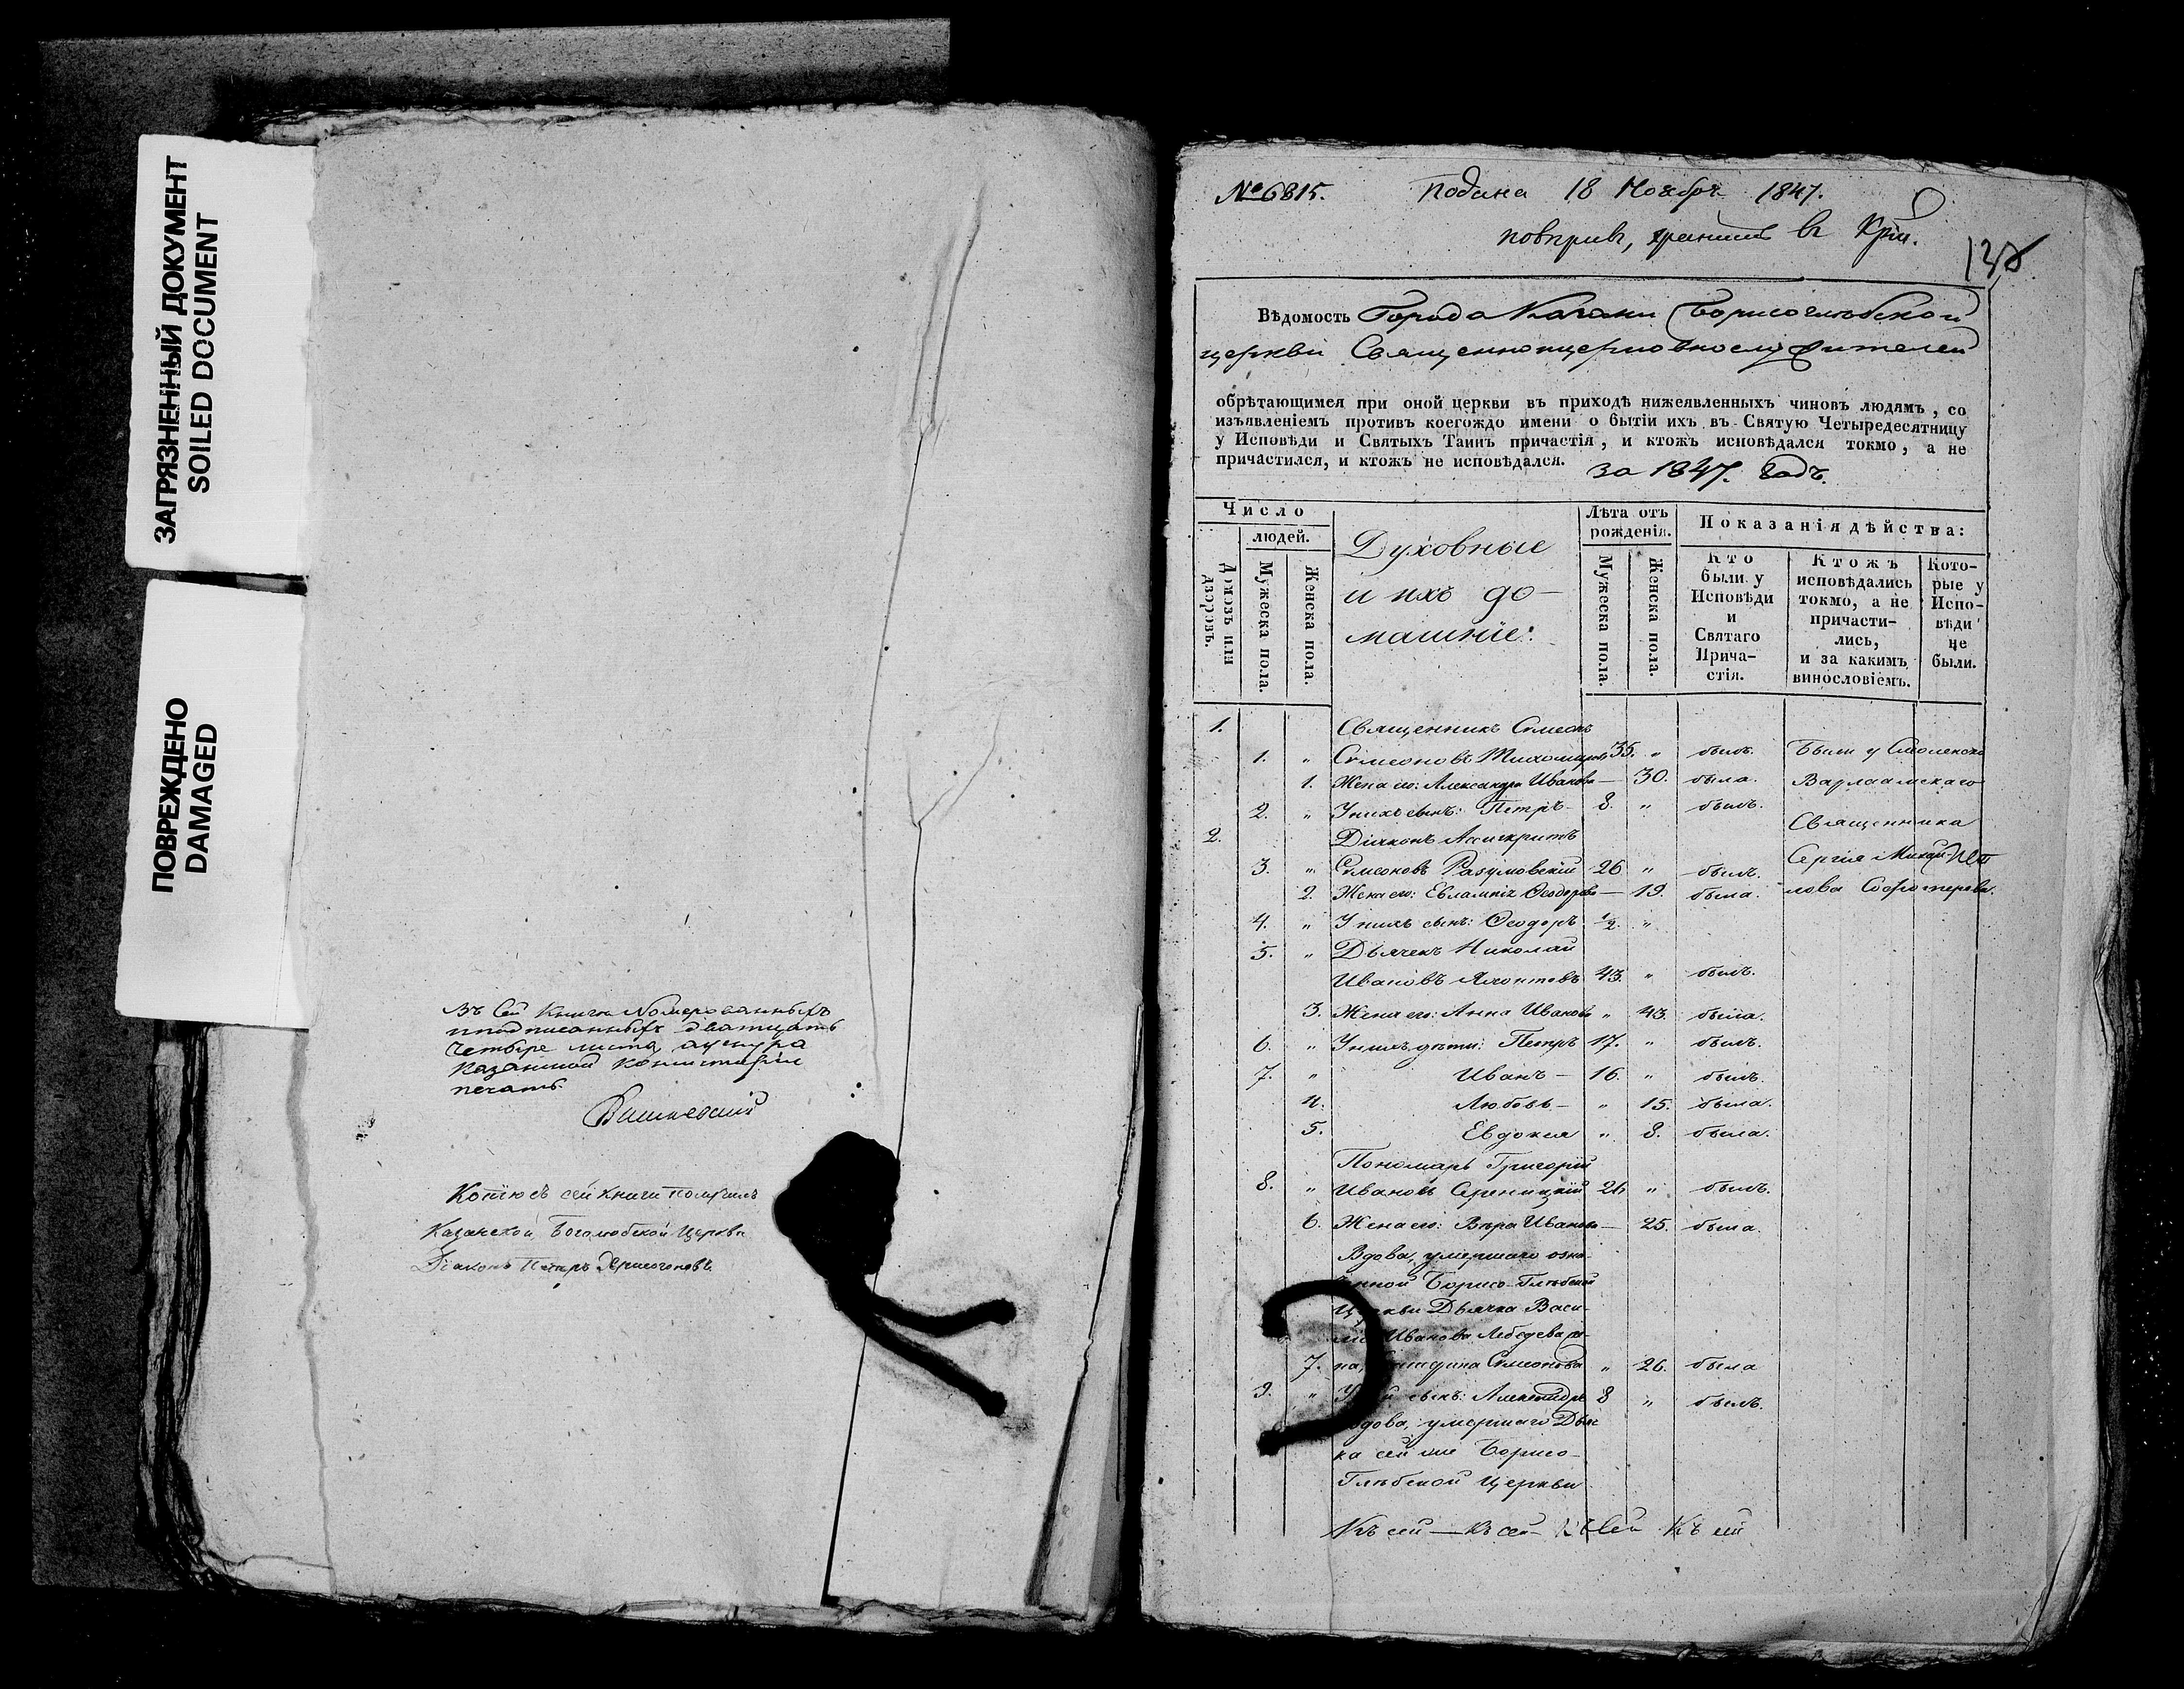 ЗАГРЯЗНЕННЫЙ ДОКУМЕНТ
SOILED DOCUMENT
ПОВРЕЖДЕНО
DAMAGED
Въ Сей Книги Номерованныхъ
и подписанныхъ двадцать
четыре листа,
Казанской Консисторіи
печать.
Вишневскій
Копію съ сей Книги получилъ
Казанской Церкви
Діаконъ Петръ
№ 6815. Подана 18 Ноября 1847.
138
Вѣдомость Города Казани Борисоглѣбской
церкви Священноцерковнослужителей
обрѣтающимся при оной церкви въ приходѣ нижеявленныхъ чиновъ людямъ, со
изъявленіемъ противъ коегождо имени о бытіи ихъ въ Святую Четыредесятницу
у Исповѣди и Святыхъ Таинъ причастія, и ктожъ исповѣдался токмо, а не
причастился, и ктожъ не исповѣдался. за 1847. Годъ.
Число
людей.
Домовъ или дворовъ.
Мужеска пола.
Женска пола.
Духовные
и ихъ до-
машніе:
Лѣта отъ
рожденія.
Мужеска пола.
Женска пола.
Показанія дѣйства:
Кто
были у
Исповѣди
и
Святаго
Прича-
стія.
Ктожъ
исповѣдались
токмо, а не
причасти-
лись,
и за какимъ
винословіемъ.
Кото-
рые у
Испо-
вѣди
не
были.
1. Священникъ Симеонъ
1. " Симеоновъ Тихомировъ 35. " былъ. Были у Смоленско
1. Жена его: Александра Иванова — 30. была. Варлаамскаго
2. " У нихъ сынъ: Петръ — 8. " былъ.
Священника
2. Діаконъ Асигкритъ
3. " Симеоновъ Разумовскій 26 " былъ. Сергія Михай-
2. Жена его: Евлампія Ѳеодорова — 19. была. лова
4. " У нихъ сынъ: Ѳеодоръ ½. "
5. " Дьячекъ Николай
Ивановъ 43. " былъ.
3. Жена его: Анна Иванова " 43. была.
6. " У нихъ дѣти: Петръ 17. " былъ.
7. " Иванъ — 16. " былъ.
4. Любовь — " 15. была.
5. Евдокія " 8. была.
Пономарь Григорій
8. " Ивановъ 26 " былъ.
6. Жена его: Вѣра Иванова — 25. была.
Вдова, умершаго озна-
ченной Борисо-Глѣбской
Церкви Дьячка Васи-
лія Иванова Лебедева
7. Симеонова " 26. была
9. " У ней сынъ: Александръ 8 " былъ.
Вдова, умершаго Дьяч
ка сей же Борисо-
Глѣбской Церкви
Къ сей — Къ сей — Къ сей Къ сей